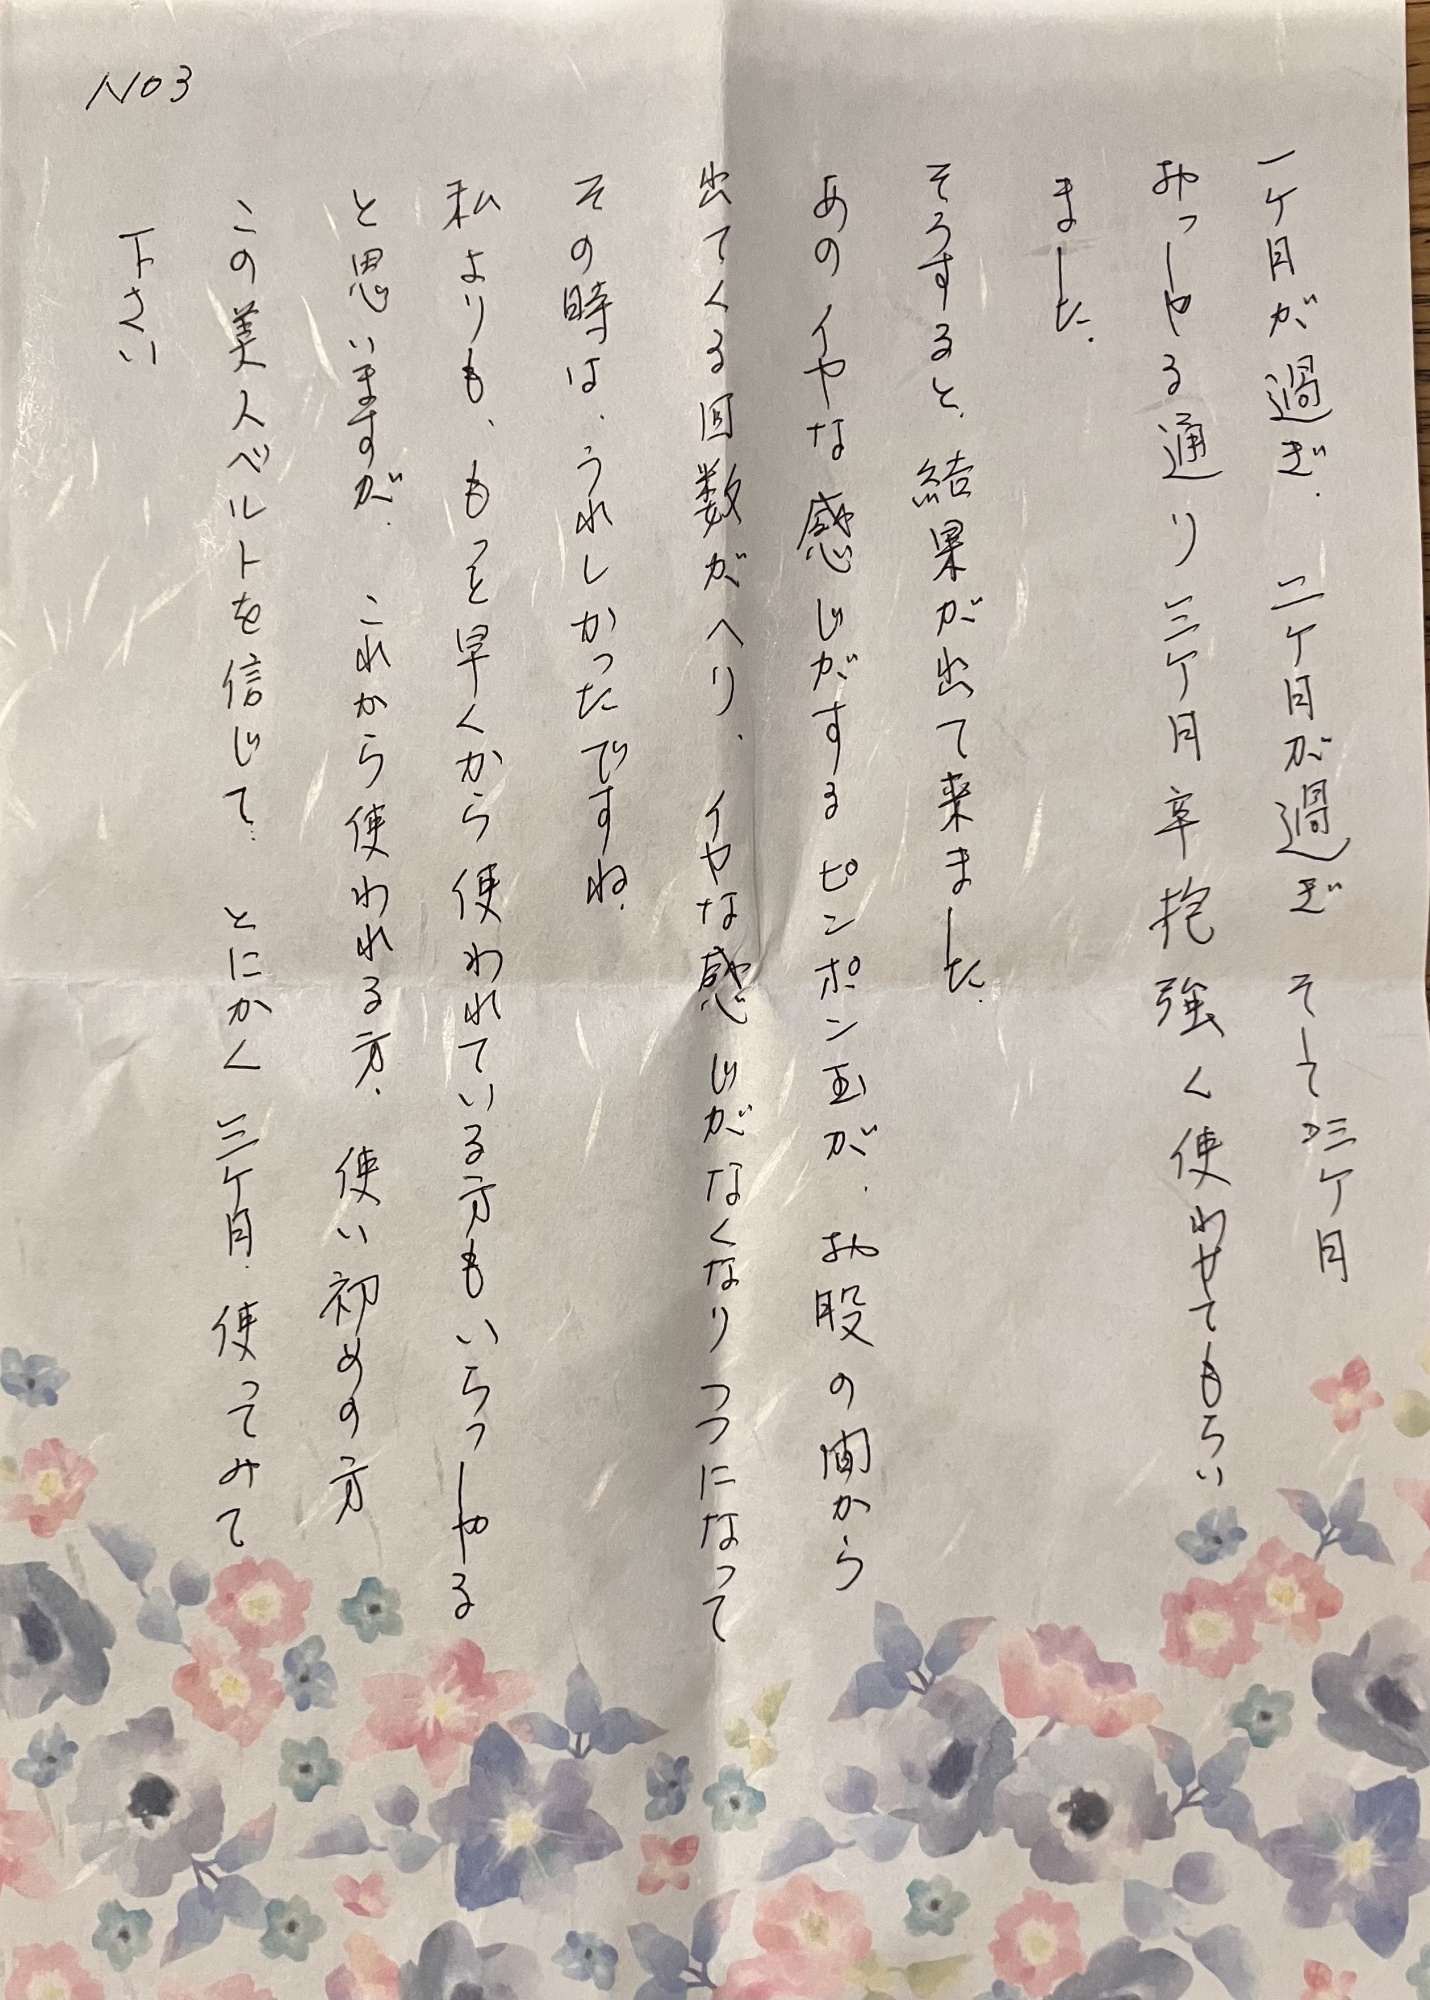 NO3
一ヶ月が過ぎ、二ヶ月が過ぎ そして三ヶ月
おっしゃる通り三ヶ月辛抱強く使わせてもらい
ました。
そうすると、結果が出て来ました。
あのイヤな感じがするピンポン玉が、お股の間から
出てくる回数がヘり、イヤな感じがなくなりつつになって
その時は、うれしかったですね、
私よりも、もっと早くから使われている方もいらっしゃる
と思いますが、これから使われる方、使い初めの方
この美人ベルトを信じて、とにかく三ヶ月、使ってみて
下さい